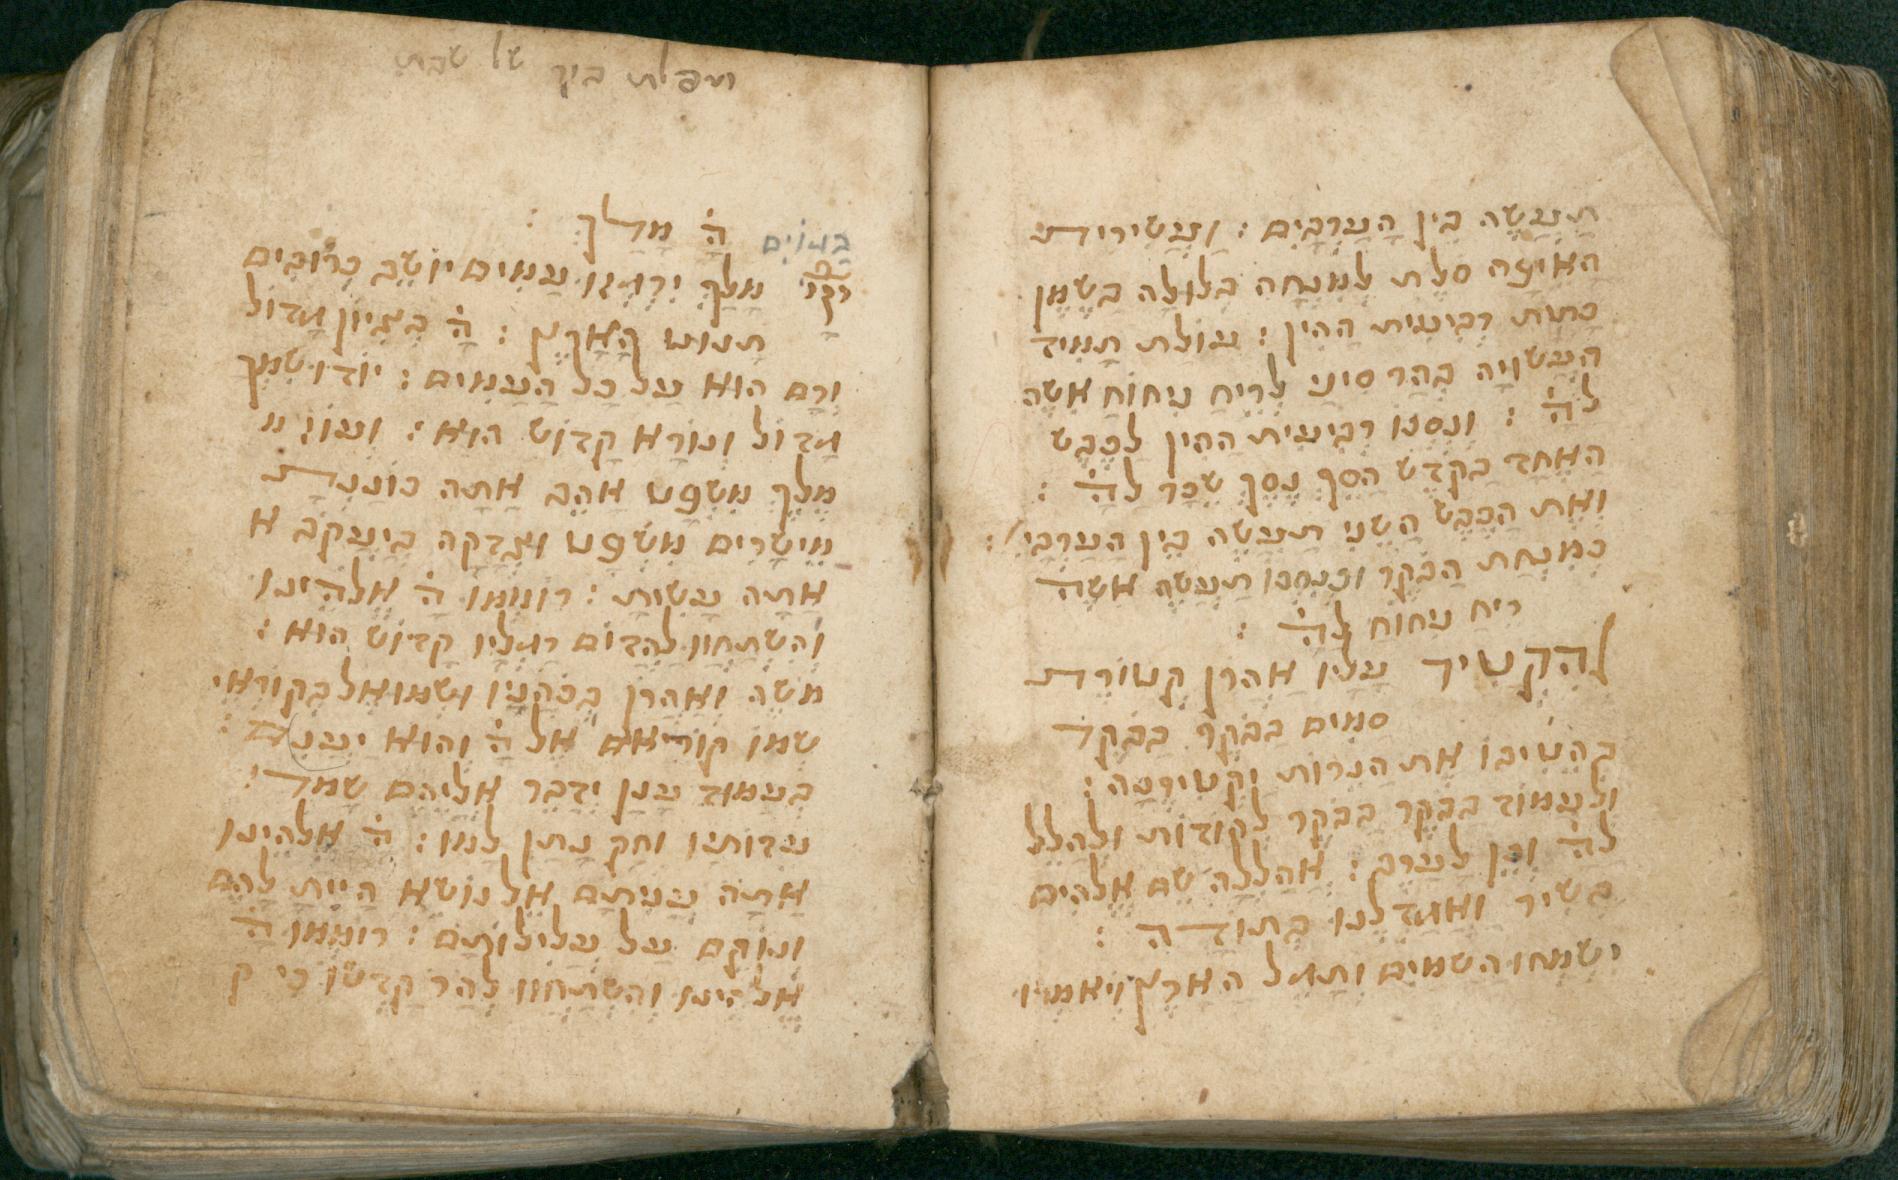 תעשה בין הערבים : ועשירית
האיפה סלת למנחה בלולה בשמן
כתית רביעית ההין : עולת תמיד
העשויה בהר סיני לריח ניחוח אשה
לה : ונסכו רביעית ההין לכבש
האחד בקדש הסך נסך שכר לה :
ואת הכבש השני תעשה בין הערבי :
כמנחת הבקר וכנסכו תעשה אשה
ריח ניחוח לה :
להקטיר עליו אהרן קטורת
סמים בבקר בבקר
בהטיבו את הנרות יקטירנה :
ולעמוד בבקר בבקר להודות ולהלל
לה וכן לערב : אהללה שם אלהים
בשיר ואגדלנו בתודה :
ישמחו השמים ותגל הארץ ויאמרו
תפלת ביק של שבת
בגוים ה מלך :
מלך ירגזו עמים יושב כרובים
תנוט הארץ : ה בציון גדול
ורם הוא על כל העמים : יודו שמך
גדול ונורא קדוש הוא : ועוז מ
מלך משפט אהב אתה כוננת
מישרים משפט וצדקה ביעקב א
אתה עשית : רוממו ה אלהינו
והשתחוו להדום רגליו קדוש הוא :
משה ואהרן בכהניו ושמואל בקוראי
שמו קוריאם אל ה והוא יענם :
בעמוד ענן ידבר אליהם שמרו
עדותיו וחק נתן למו : ה אלהינו
אתה עניתם אל נושא היית להם
ונוקם על עלילותם : רוממו ה
אלהינו והשתחוו להר קדשו כי ק